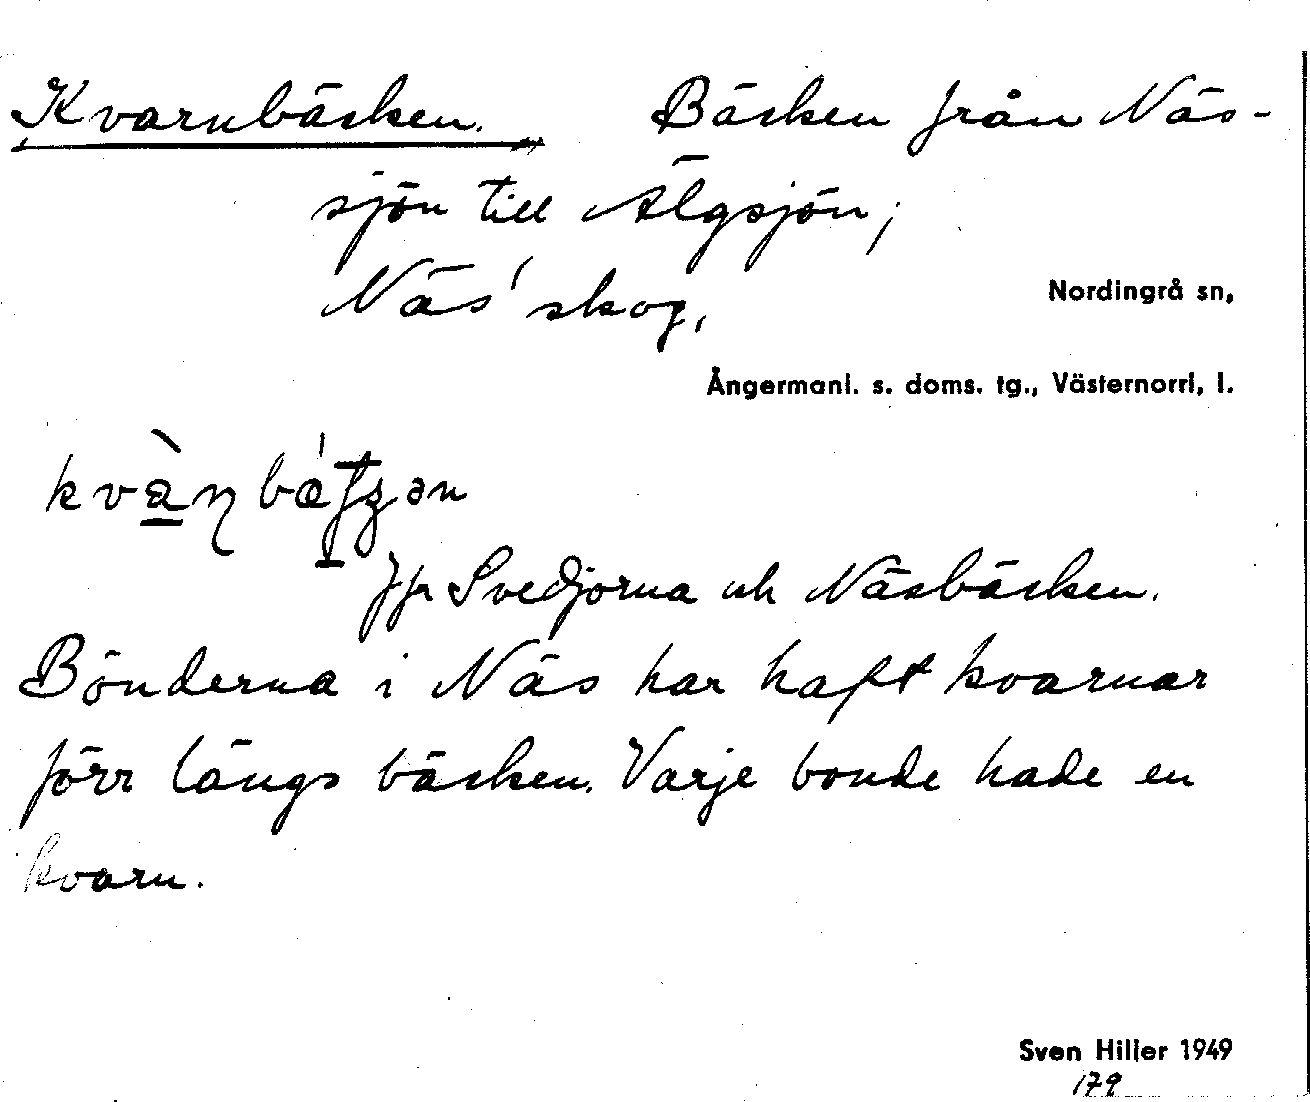 Kvarnbäcken. Bäcken från Näs-
sjön till Älgsjön;
Näs' skog,
Nordingrå sn,
Ångermanl. s. doms. tg., Västernorrl. l.
Jfr Svedjorna och Näsbäcken.
Bönderna i Näs har haft kvarnar
förr längs bäcken. Varje bonde hade en
kvarn.
Sven Hiller 1949
179